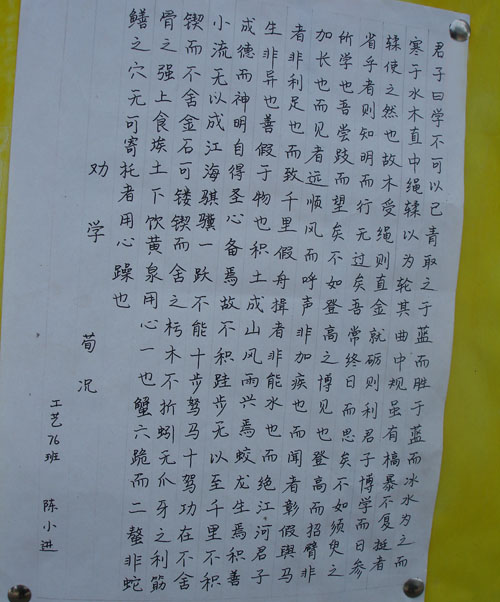 君子曰学不可以已青取之于蓝而胜于蓝而冰水为之而
寒于水木直中绳輮以为轮其曲中规虽有槁暴不复挺者
輮使之然也故木受绳则直金就砺则利君子博学而日参
省乎者则知明而行无过矣吾常终日而思矣不如须臾之
所学也吾尝跂而望矣不如登高之博见也登高而招臂非
加长也而见者远顺风而呼声非加疾也而闻者彰假舆马
者非利足也而致千里假舟揖者非能水也而绝江河君子
生非异也善假于物也积土成山风雨兴焉蛟龙生焉积善
成德而神明自得圣心备焉故不积跬步无以至千里不积
小流无以成江海骐骥一跃不能十步驽马十驾功在不舍
锲而不舍金石可镂锲而舍之朽木不折蚓无爪牙之利筋
骨之强上食埃土下饮黄泉用心一也蟹六跪而二螯非蛇
鳝之穴无可寄托者用心躁也
劝学 荀况
工艺76班 陈小进